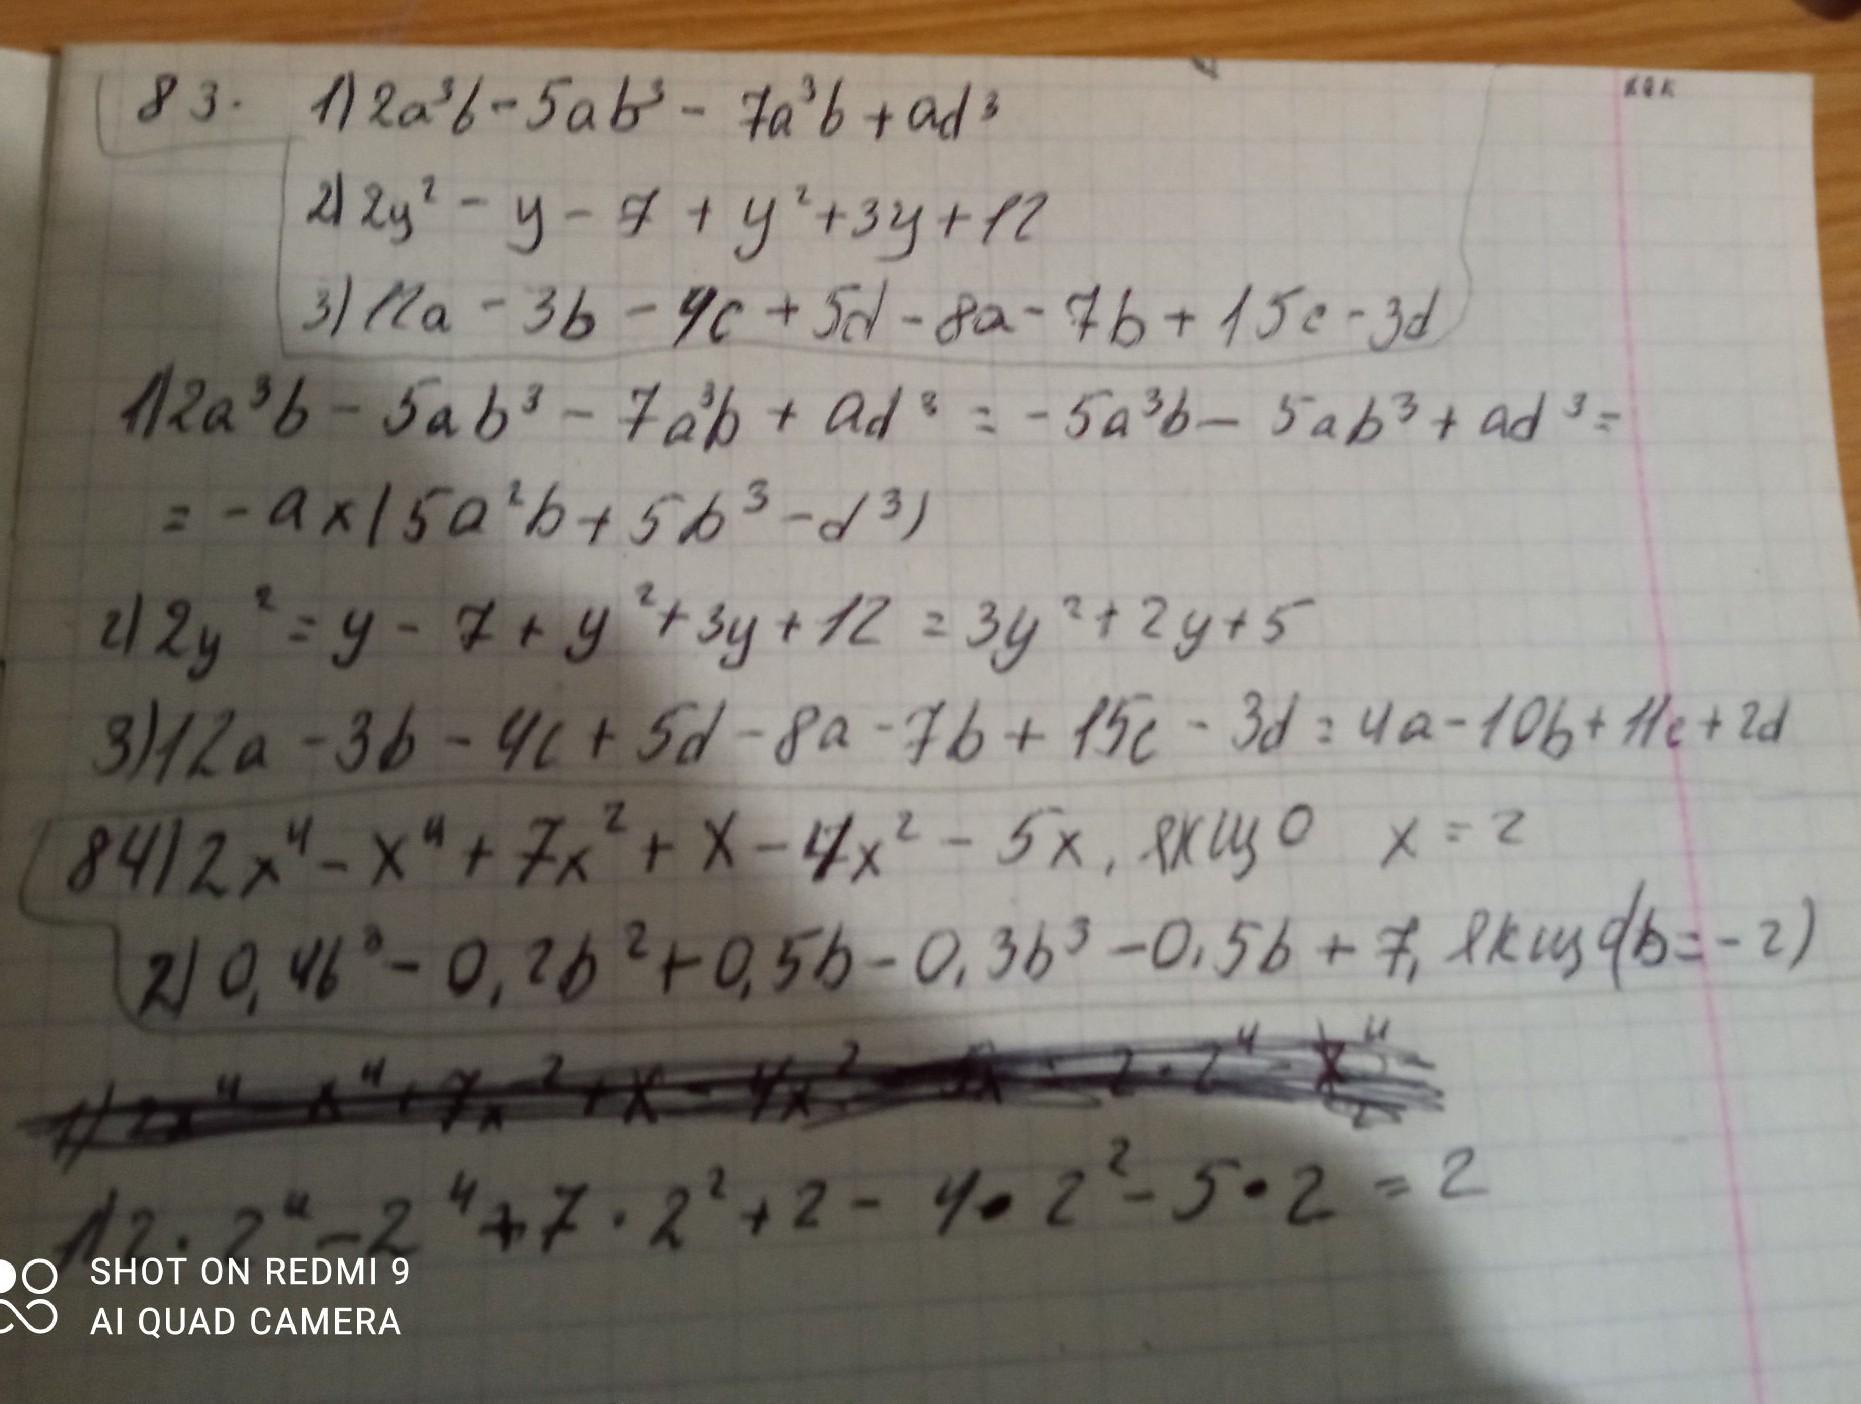 83. 1) 2a³b - 5ab³ - 7a³b + ad³
2) 2y² - y - 7 + y² + 3y + 12
3) 12a - 3b - 4c + 5d - 8a - 7b + 15c - 3d
1) 2a³b - 5ab³ - 7a³b + ad³ = -5a³b - 5ab³ + ad³ =
= -a x (5a²b + 5b³ - d³)
2) 2y² = y - 7 + y² + 3y + 12 = 3y² + 2y + 5
3) 12a - 3b - 4c + 5d - 8a - 7b + 15c - 3d = 4a - 10b + 11c + 2d
84 1) 2x⁴ - x⁴ + 7x² + x - 4x² - 5x, якщо x = 2
2) 0,4b³ - 0,2b² + 0,5b - 0,3b³ - 0,5b + 7, якщо (b = -2)
1) 2·2⁴ - 2⁴ + 7·2² + 2 - 4·2² - 5·2 = 2
SHOT ON REDMI 9
AI QUAD CAMERA